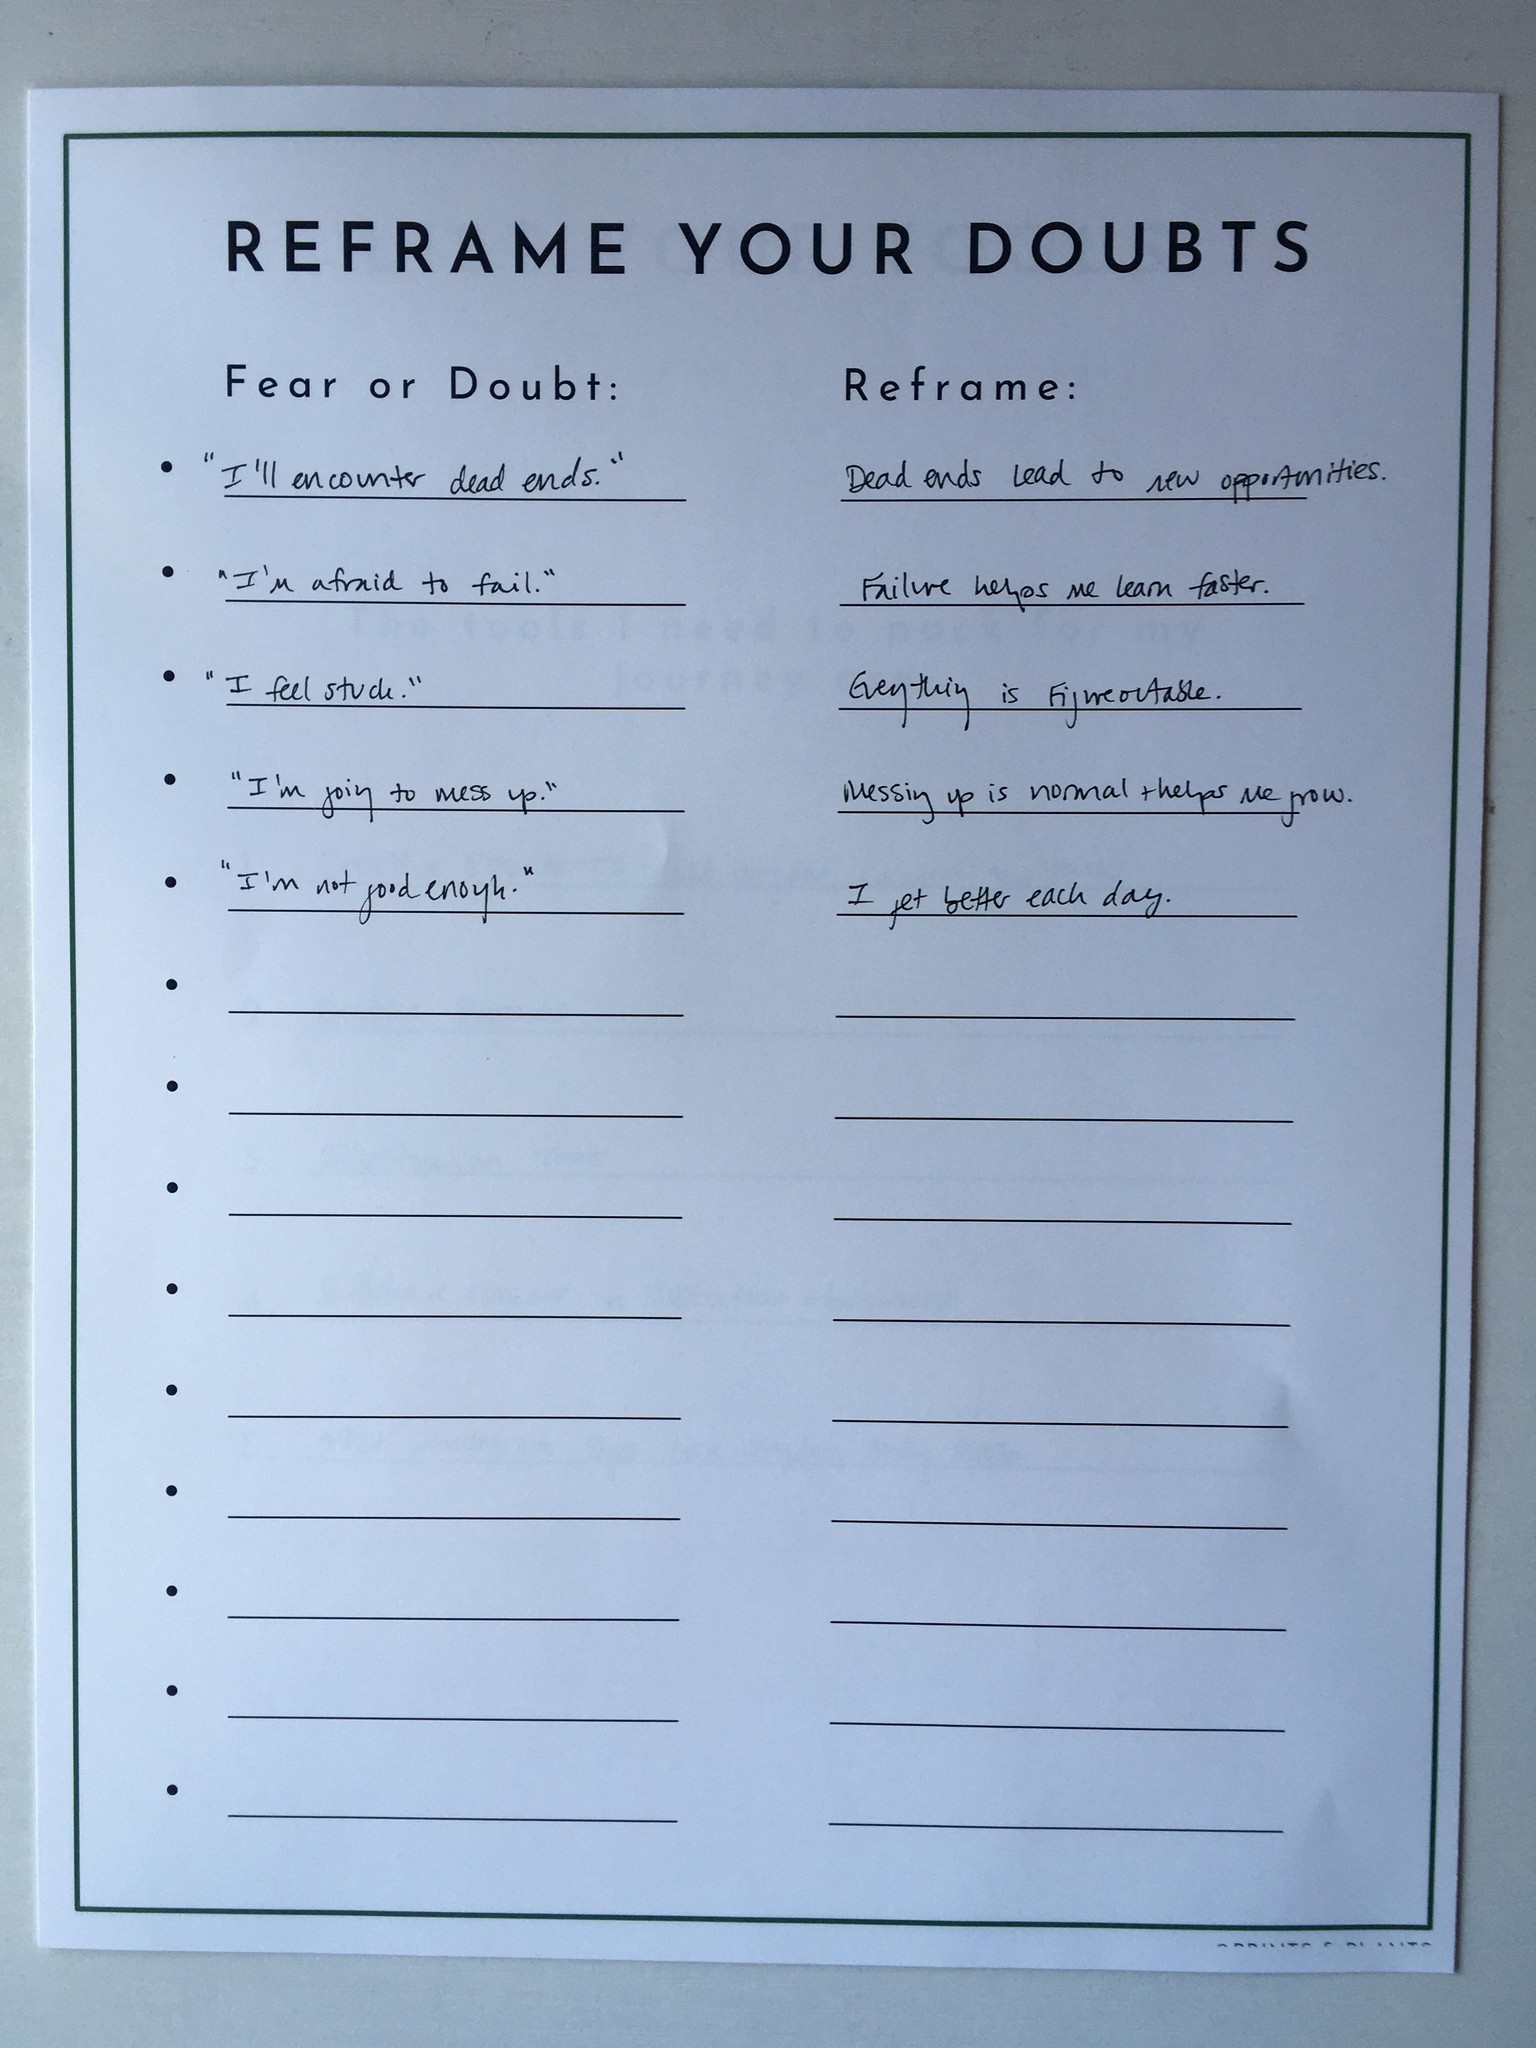 REFRAME YOUR DOUBTS
Fear or Doubt: Reframe:
"I'll encounter dead ends." Dead ends lead to new opportunities.
"I'm afraid to fail." Failure helps me learn faster.
"I feel stuck." Everything is Figureoutable.
"I'm going to mess up." Messing up is normal + helps me grow.
"I'm not good enough." I get better each day.
The tools I need to pack for my
journey